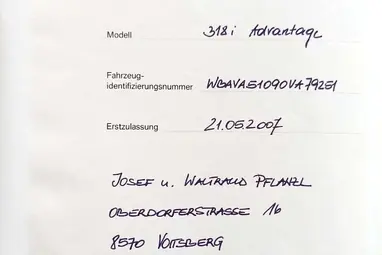 Modell 318i Advantage
Fahrzeug-
identifizierungsnummer WBAVAE1090VA79251
Erstzulassung 21.05.2007
JOSEF u. WALTRAUD PFLANZL
OBERDORFERSTRASSE 16
8570 VOITSBERG